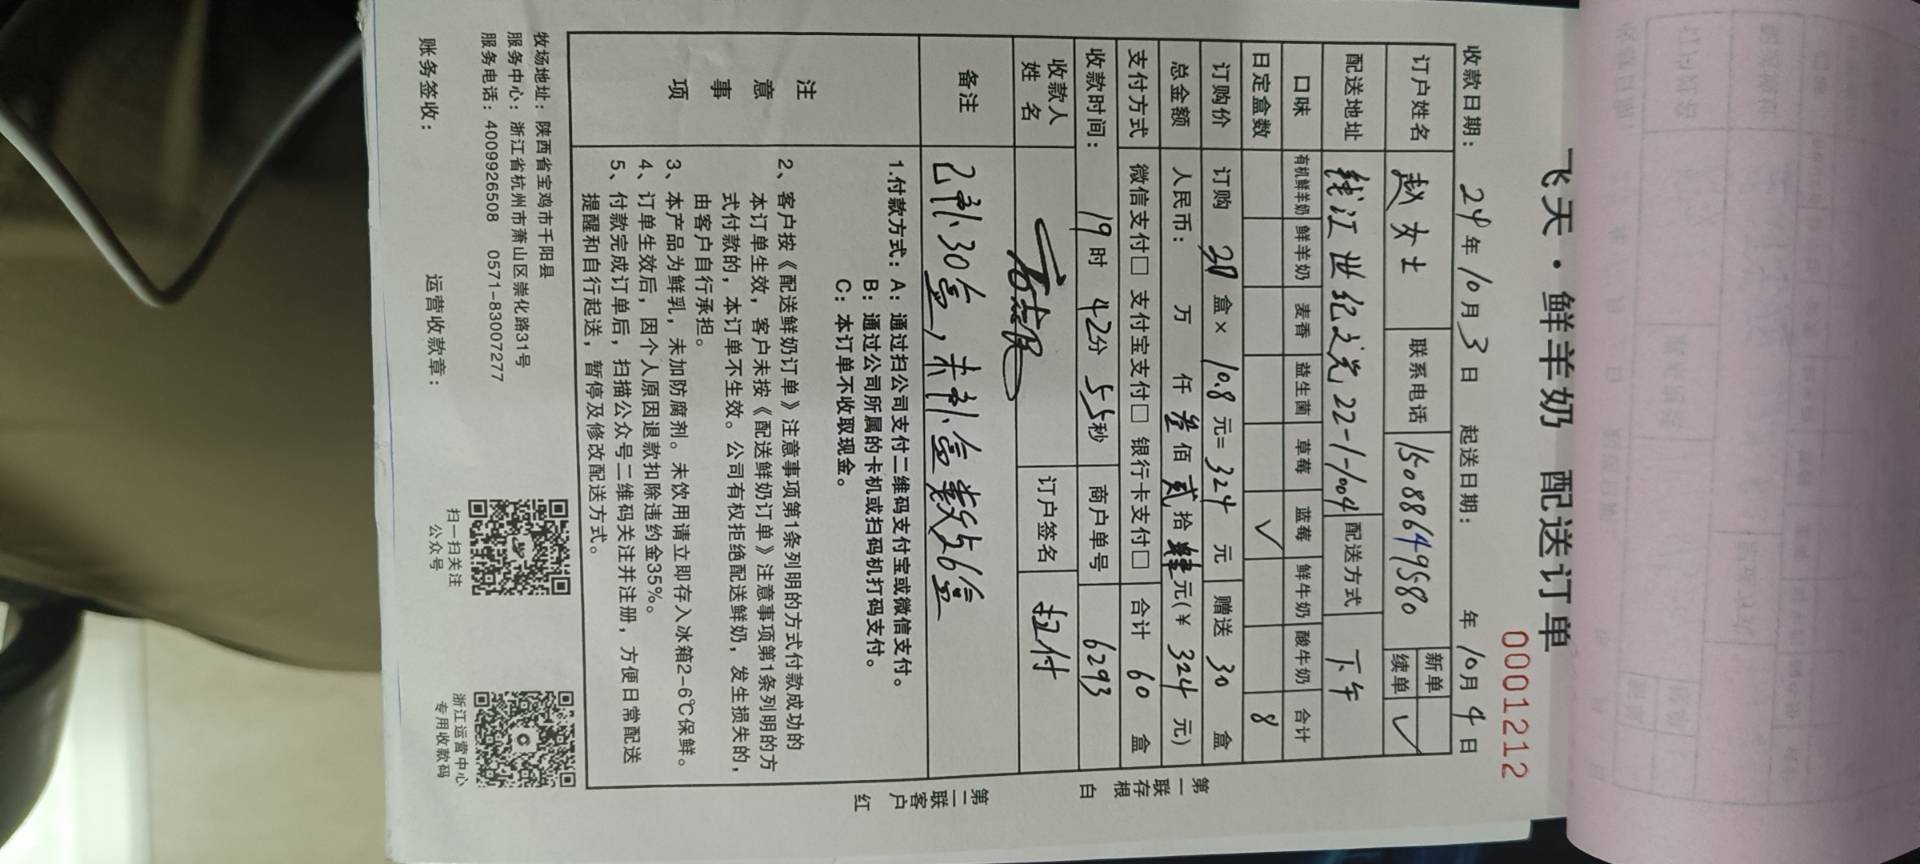 飞天·鲜羊奶 配送订单
0001212
收款日期： 24年10月3日 起送日期： 年10月4日
订户姓名 赵女士 联系电话 15088649580 新单 续单 ✓
配送地址 钱江世纪文光22-1-1004 配送方式 下午
口味 有机鲜羊奶 鲜羊奶 麦香 益生菌 草莓 蓝莓 鲜牛奶 酸牛奶 合计
日定盒数 ✓ 8
订购价 订购 30 盒× 10.8 元= 324 元 赠送 30 盒
总金额 人民币： 万 仟 叁佰贰拾肆元(￥ 324 元)
支付方式 微信支付□ 支付宝支付□ 银行卡支付□ 合计 60 盒
收款时间： 19时42分55秒 商户单号 6293
收款人姓名 订户签名
备注 已补30盒，未补盒数56盒
注意事项
1.付款方式：A：通过扫公司支付二维码支付宝或微信支付。
B：通过公司所属的卡机或扫码机打码支付。
C：本订单不收取现金。
2、客户按《配送鲜奶订单》注意事项第1条列明的方式付款成功的
本订单生效，客户未按《配送鲜奶订单》注意事项第1条列明的方
式付款的，本订单不生效。公司有权拒绝配送鲜奶，发生损失的，
由客户自行承担。
3、本产品为鲜乳，未加防腐剂。未饮用请立即存入冰箱2-6℃保鲜。
4、订单生效后，因个人原因退款扣除违约金35%。
5、付款完成订单后，扫描公众号二维码关注并注册，方便日常配送
提醒和自行起送，暂停及修改配送方式。
第一联存根 白
第二联客户 红
牧场地址：陕西省宝鸡市千阳县
服务中心：浙江省杭州市萧山区崇化路31号
服务电话：4009926508 0571-83007277
扫一扫关注
公众号
浙江运营中心
专用收款码
账务签收： 运营收款章：